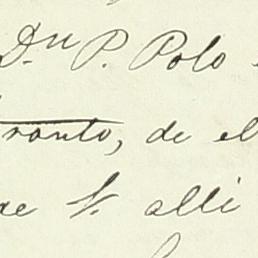 Dn. P. Polo
ronto, de el
de V. alli